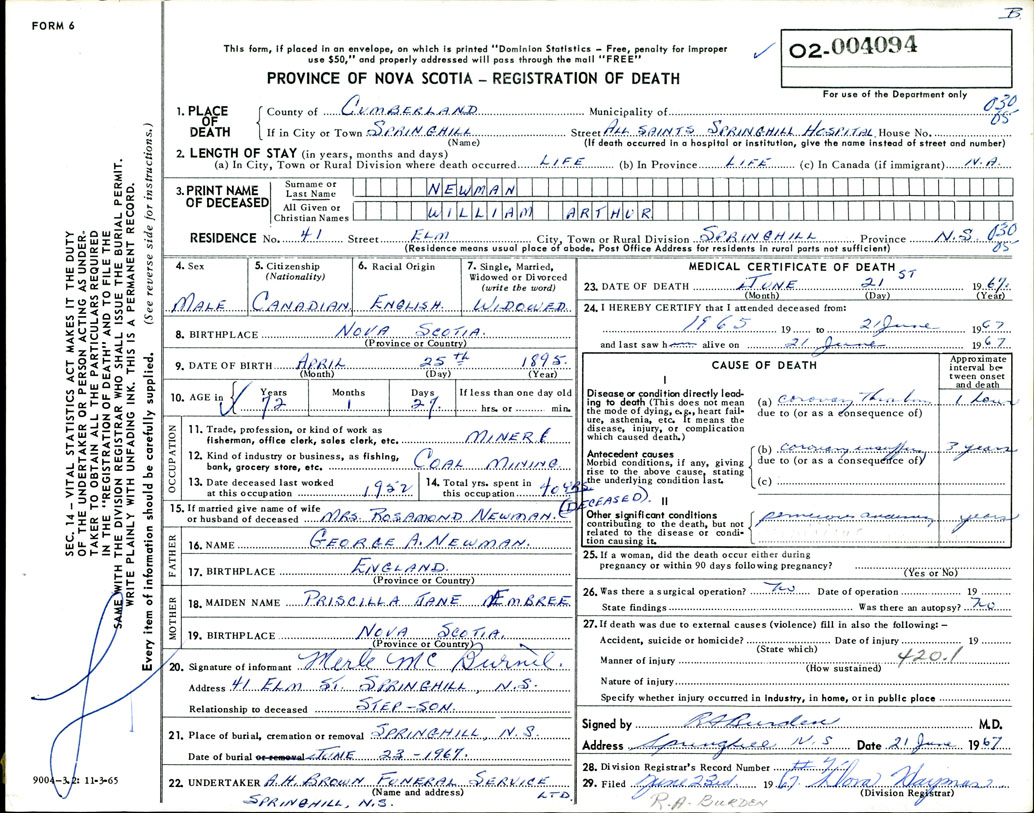 B
FORM 6
This form, if placed in an envelope, on which is printed "Dominion Statistics – Free, penalty for improper
use $50," and properly addressed will pass through the mail "FREE"
✓ O2-004094
PROVINCE OF NOVA SCOTIA – REGISTRATION OF DEATH
For use of the Department only
SEC. 14 – VITAL STATISTICS ACT MAKES IT THE DUTY
OF THE UNDERTAKER OR PERSON ACTING AS UNDER-
TAKER TO OBTAIN ALL THE PARTICULARS REQUIRED
IN THE "REGISTRATION OF DEATH" AND TO FILE THE
SAME WITH THE DIVISION REGISTRAR WHO SHALL ISSUE THE BURIAL PERMIT.
WRITE PLAINLY WITH UNFADING INK. THIS IS A PERMANENT RECORD.
Every item of information should be carefully supplied. (See reverse side for instructions.)
1. PLACE OF DEATH
County of CUMBERLAND Municipality of 030
If in City or Town SPRINGHILL Street ALL SAINTS SPRINGHILL HOSPITAL House No. 05
(Name) (If death occurred in a hospital or institution, give the name instead of street and number)
2. LENGTH OF STAY (in years, months and days)
(a) In City, Town or Rural Division where death occurred LIFE (b) In Province LIFE (c) In Canada (if immigrant) N.A.
3. PRINT NAME OF DECEASED
Surname or Last Name NEWMAN
All Given or Christian Names WILLIAM ARTHUR
RESIDENCE No. 41 Street ELM City, Town or Rural Division SPRINGHILL Province N.S. 030
(Residence means usual place of abode. Post Office Address for residents in rural parts not sufficient) 05
4. Sex MALE
5. Citizenship (Nationality) CANADIAN
6. Racial Origin ENGLISH.
7. Single, Married, Widowed or Divorced (write the word) WIDOWED
8. BIRTHPLACE NOVA SCOTIA.
(Province or Country)
9. DATE OF BIRTH APRIL 25TH 1895.
(Month) (Day) (Year)
10. AGE in ✓ Years 72 Months 1 Days 27 If less than one day old
hrs. or min.
OCCUPATION
11. Trade, profession, or kind of work as
fisherman, office clerk, sales clerk, etc. MINER
12. Kind of industry or business, as fishing,
bank, grocery store, etc. COAL MINING
13. Date deceased last worked
at this occupation 1952
14. Total yrs. spent in
this occupation 40 YRS.
15. If married give name of wife
or husband of deceased MRS. ROSAMOND NEWMAN. (DECEASED).
FATHER
16. NAME GEORGE A. NEWMAN.
17. BIRTHPLACE ENGLAND
(Province or Country)
MOTHER
18. MAIDEN NAME PRISCILLA JANE EMBREE
19. BIRTHPLACE NOVA SCOTIA.
(Province or Country)
20. Signature of informant Merle Mc
Address 41 ELM ST. SPRINGHILL, N.S.
Relationship to deceased STEP-SON.
21. Place of burial, cremation or removal SPRINGHILL, N.S.
Date of burial or removal JUNE 23-1967.
22. UNDERTAKER A.H. BROWN FUNERAL SERVICE LTD.
(Name and address)
SPRINGHILL, N.S.
9004-3.2: 11-3-65
MEDICAL CERTIFICATE OF DEATH
23. DATE OF DEATH JUNE 21ST 1967.
(Month) (Day) (Year)
24. I HEREBY CERTIFY that I attended deceased from:
1965 19 to 21 June 1967
and last saw h alive on 21 June 1967
CAUSE OF DEATH
Approximate interval between onset and death
I
Disease or condition directly lead-
ing to death (This does not mean
the mode of dying, e.g., heart fail-
ure, asthenia, etc. It means the
disease, injury, or complication
which caused death.)
(a) coronary 1 hour
due to (or as a consequence of)
Antecedent causes
Morbid conditions, if any, giving
rise to the above cause, stating
the underlying condition last.
(b) coronary 3 years
due to (or as a consequence of)
(c)
II
Other significant conditions
contributing to the death, but not
related to the disease or condi-
tion causing it.
pernicious anaemia years
25. If a woman, did the death occur either during
pregnancy or within 90 days following pregnancy?
(Yes or No)
26. Was there a surgical operation? No Date of operation 19
State findings Was there an autopsy? No
27. If death was due to external causes (violence) fill in also the following: –
Accident, suicide or homicide? Date of injury 19
(State which)
Manner of injury 420.1
(How sustained)
Nature of injury
Specify whether injury occurred in industry, in home, or in public place
Signed by RA Burden M.D.
Address Springhill N S Date 21 June 1967
28. Division Registrar's Record Number
29. Filed June 23rd 1967 Nora
(Division Registrar)
R.A. BURDEN